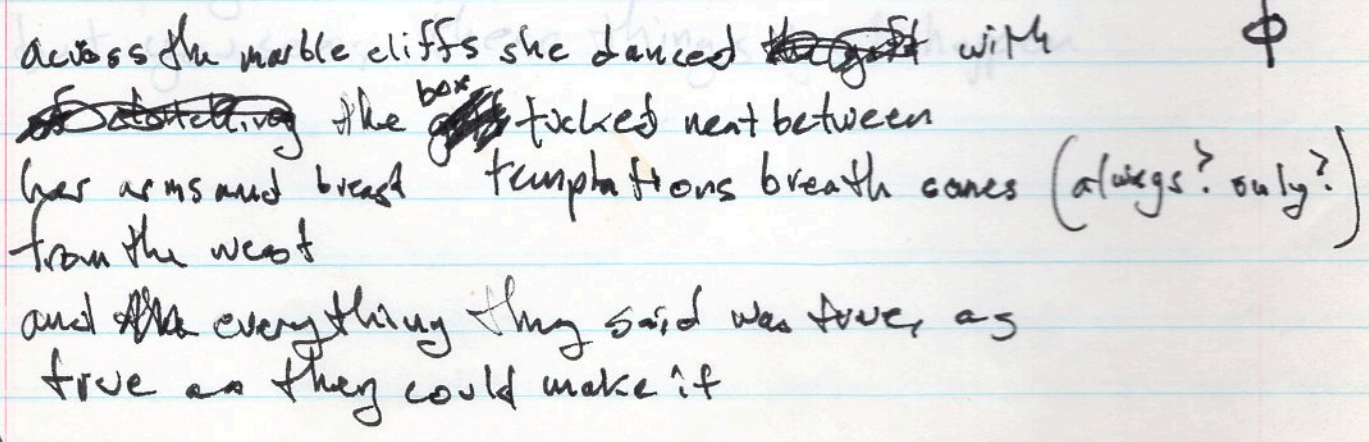 across the marble cliffs she danced with ϕ
the box tucked neat between
her arms and breast temptations breath comes (always? only?)
from the west
and everything they said was true, as
true as they could make it